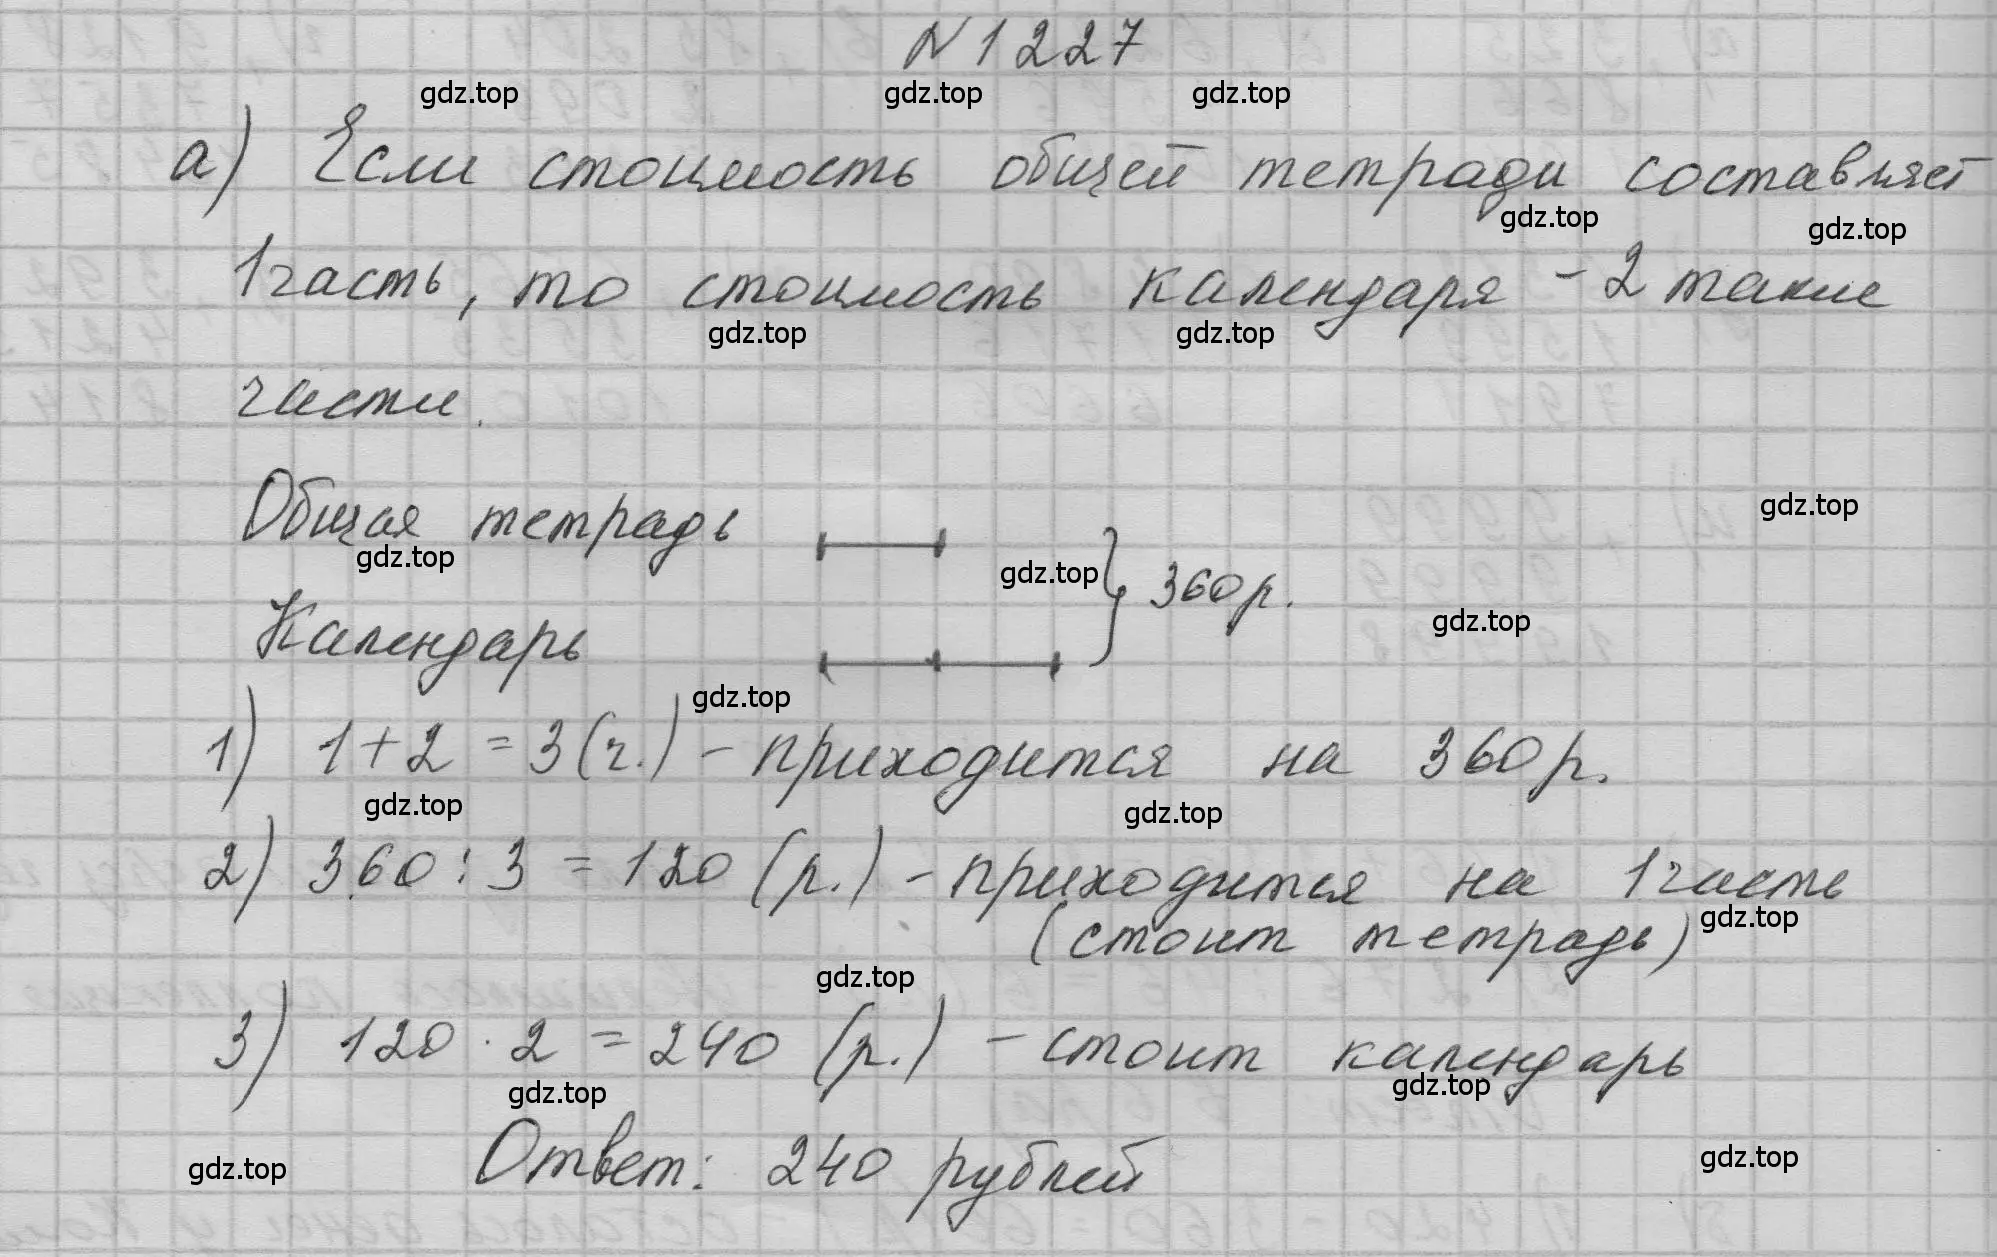 N 1227
gdz.top gdz.top gdz.top
а) Если стоимость общей тетради составляет
gdz.top gdz.top
1 часть, то стоимость календаря - 2 такие
gdz.top gdz.top
части.
gdz.top
Общая тетрадь
gdz.top gdz.top } 360 р.
gdz.top
Календарь
gdz.top
1) 1 + 2 = 3 (ч.) - приходится на 360 р.
gdz.top gdz.top
2) 360 : 3 = 120 (р.) - приходится на 1 часть
gdz.top
(стоит тетрадь)
gdz.top
3) 120 · 2 = 240 (р.) - стоит календарь
gdz.top gdz.top
Ответ: 240 рублей
gdz.top gdz.top